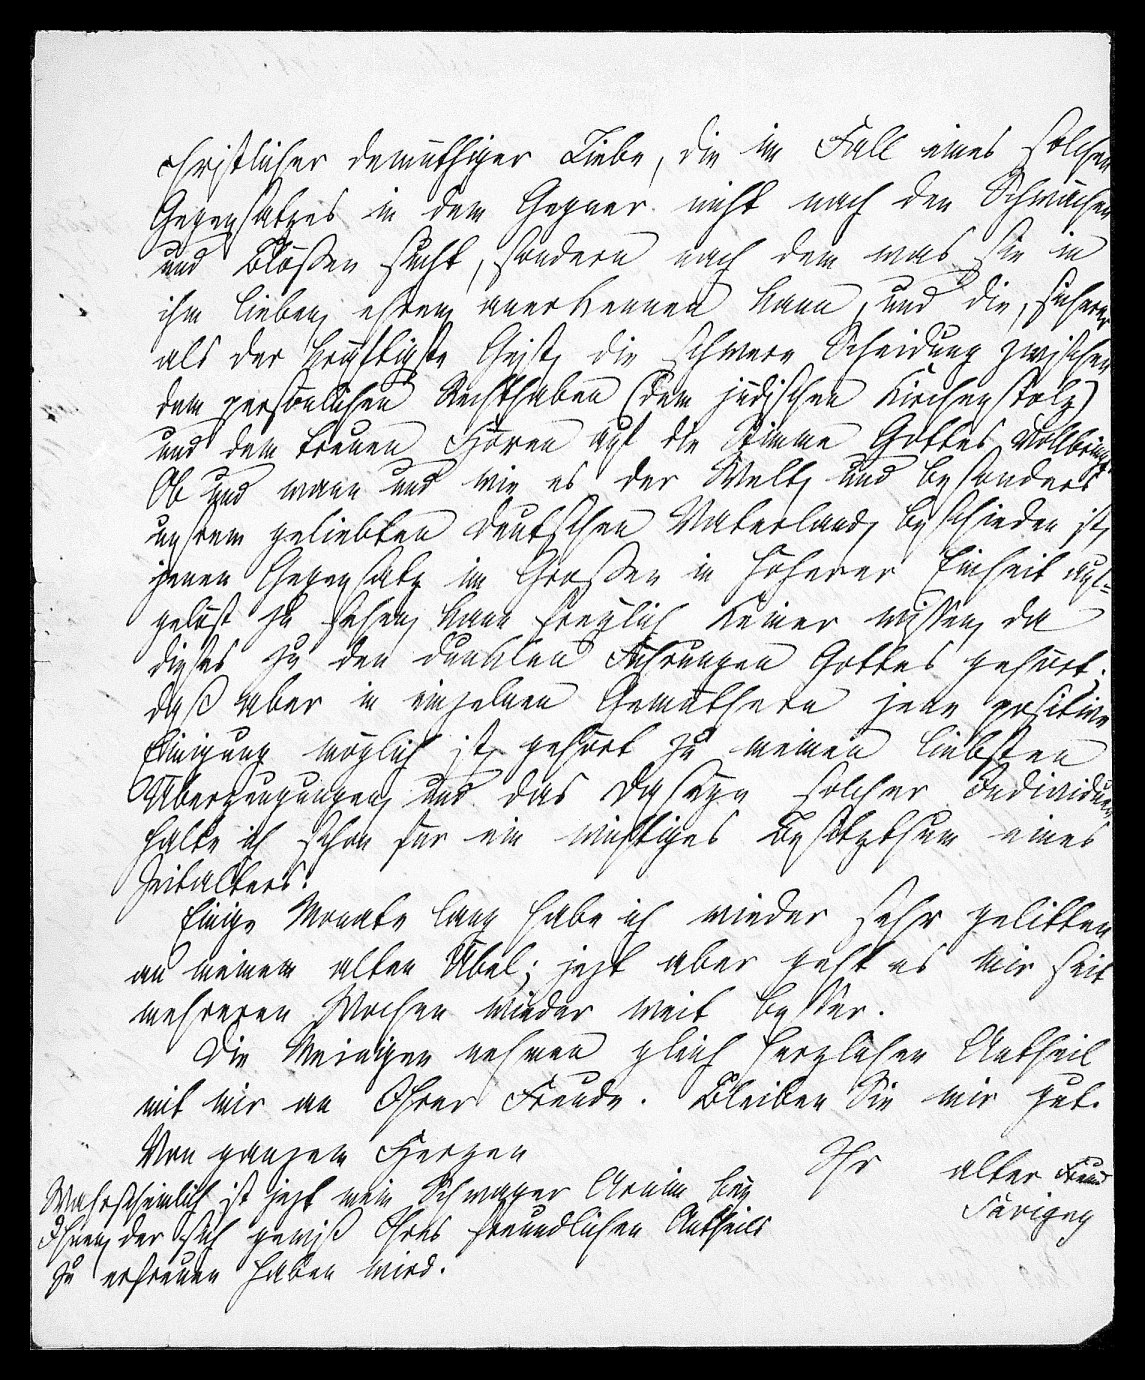 christlicher demüthiger Liebe, die im Fall eines solchen
Gegensatzes in dem Gegner nicht nach den Schwächen
und Blößen sucht, sondern nach dem was sie in
ihm lieben, ehren, anerkennen kann, und die, sicherer
als der kräftigste Geist, die schwere Scheidung zwischen
dem persönlichen Rechthaben (dem jüdischen Kirchenstolz)
und dem treuen Hören auf die Stimme Gottes vollbringt.
Ob und wann und wie es der Welt, und besonders
unsrem geliebten deutschen Vaterland, beschieden ist,
jenen Gegensatz im Großen in höherer Einheit auf-
gelöst zu sehen, kann freylich Keiner wissen, da
dieses zu den dunklen Führungen Gottes gehört;
daß aber in einzelnen Gemüthern jene positive
Einigung möglich ist, gehört zu meinen liebsten
Überzeugungen, und das Daseyn solcher Individuen
halte ich schon für ein wichtiges Besitzthum eines
Zeitalters.
Einige Monate lang habe ich wieder sehr gelitten
an meinem alten Übel; jezt aber geht es mir seit
mehreren Wochen wieder weit besser.
Die Meinigen nehmen gleich herzlichen Antheil
mit mir an Ihrer Freude. Bleiben Sie mir gut.
Von ganzem Herzen
Ihr alter Freund
Savigny
Wahrscheinlich ist jezt mein Schwager Arnim bey
Ihnen, der sich gewiß Ihres freundlichen Antheils
zu erfreuen haben wird.